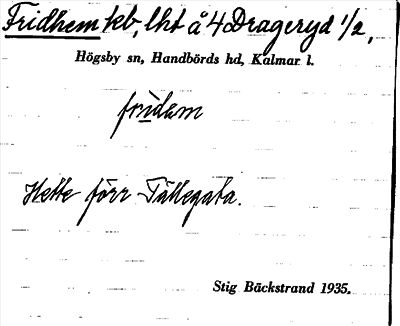 Fridhem lht å 4 Drageryd 1/2,
Högsby sn, Handbörds hd, Kalmar l.
fridem
Hette förr Tällegata.
Stig Bäckstrand 1935.